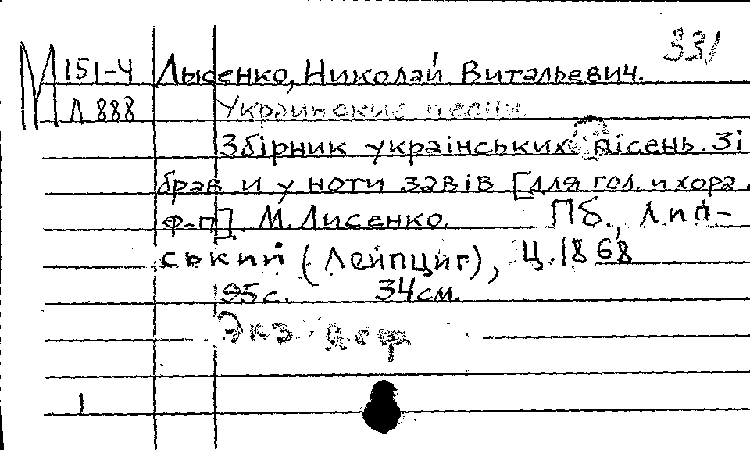 331
М 151-4 Лысенко, Николай Витальевич.
Л 888 Украинские песни
Збірник украінських пісень. Зі
брав и у ноти завів [для гол. и хора,
ф-п]. М. Лисенко. Пб., Лип-
ський (Лейпциг), Ц. 1868
95 с. 34 см.
Экз. деф
1